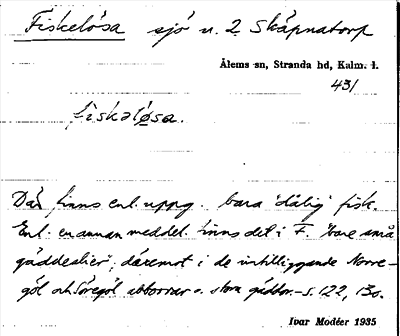 Fiskelösa sjö u. 2 Skäpnatorp
Ålems sn, Stranda hd, Kalm. l.
431
fiskəlø̱sa.
Där finns enl. uppg. bara "dålig" fisk.
Enl. en annan meddel. finns det i F. "bare små
gäddealier", däremot i de intilliggande Norre-
göl och Söregöl abborrar o. stora gäddor. - s. 122, 130.
Ivar Modéer 1935